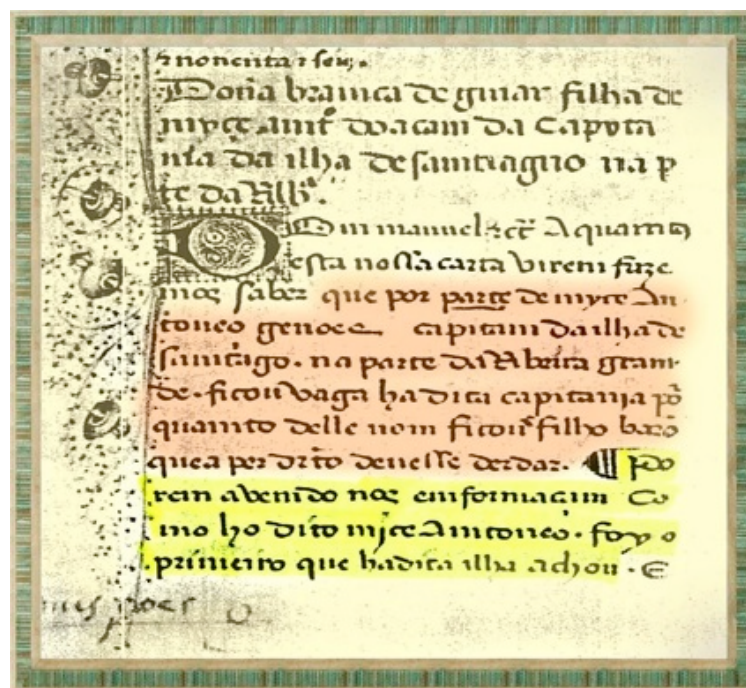 ⁊ noventa ⁊ seis.
Dona branca de guiar filha de
myce ant̃ doacam da Capyta
nia da ilha de santiaguo na p
te da Rib.ª
Dom manuel ⁊ cẽ A quantos
esta nossa carta virem faze
mos saber que por parte de myce An
toneo genoes capitam da ilha de
santiago. na parte da Ribeira gram
de. ficou vaga ha dita capitania por
quanto delle nom ficou filho baro
que a per dr̃to devesse derdar. Po
rem avendo nos emformacam Co
mo ho dito myce Antoneo. foy o
primeiro que ha dita ilha achou. E